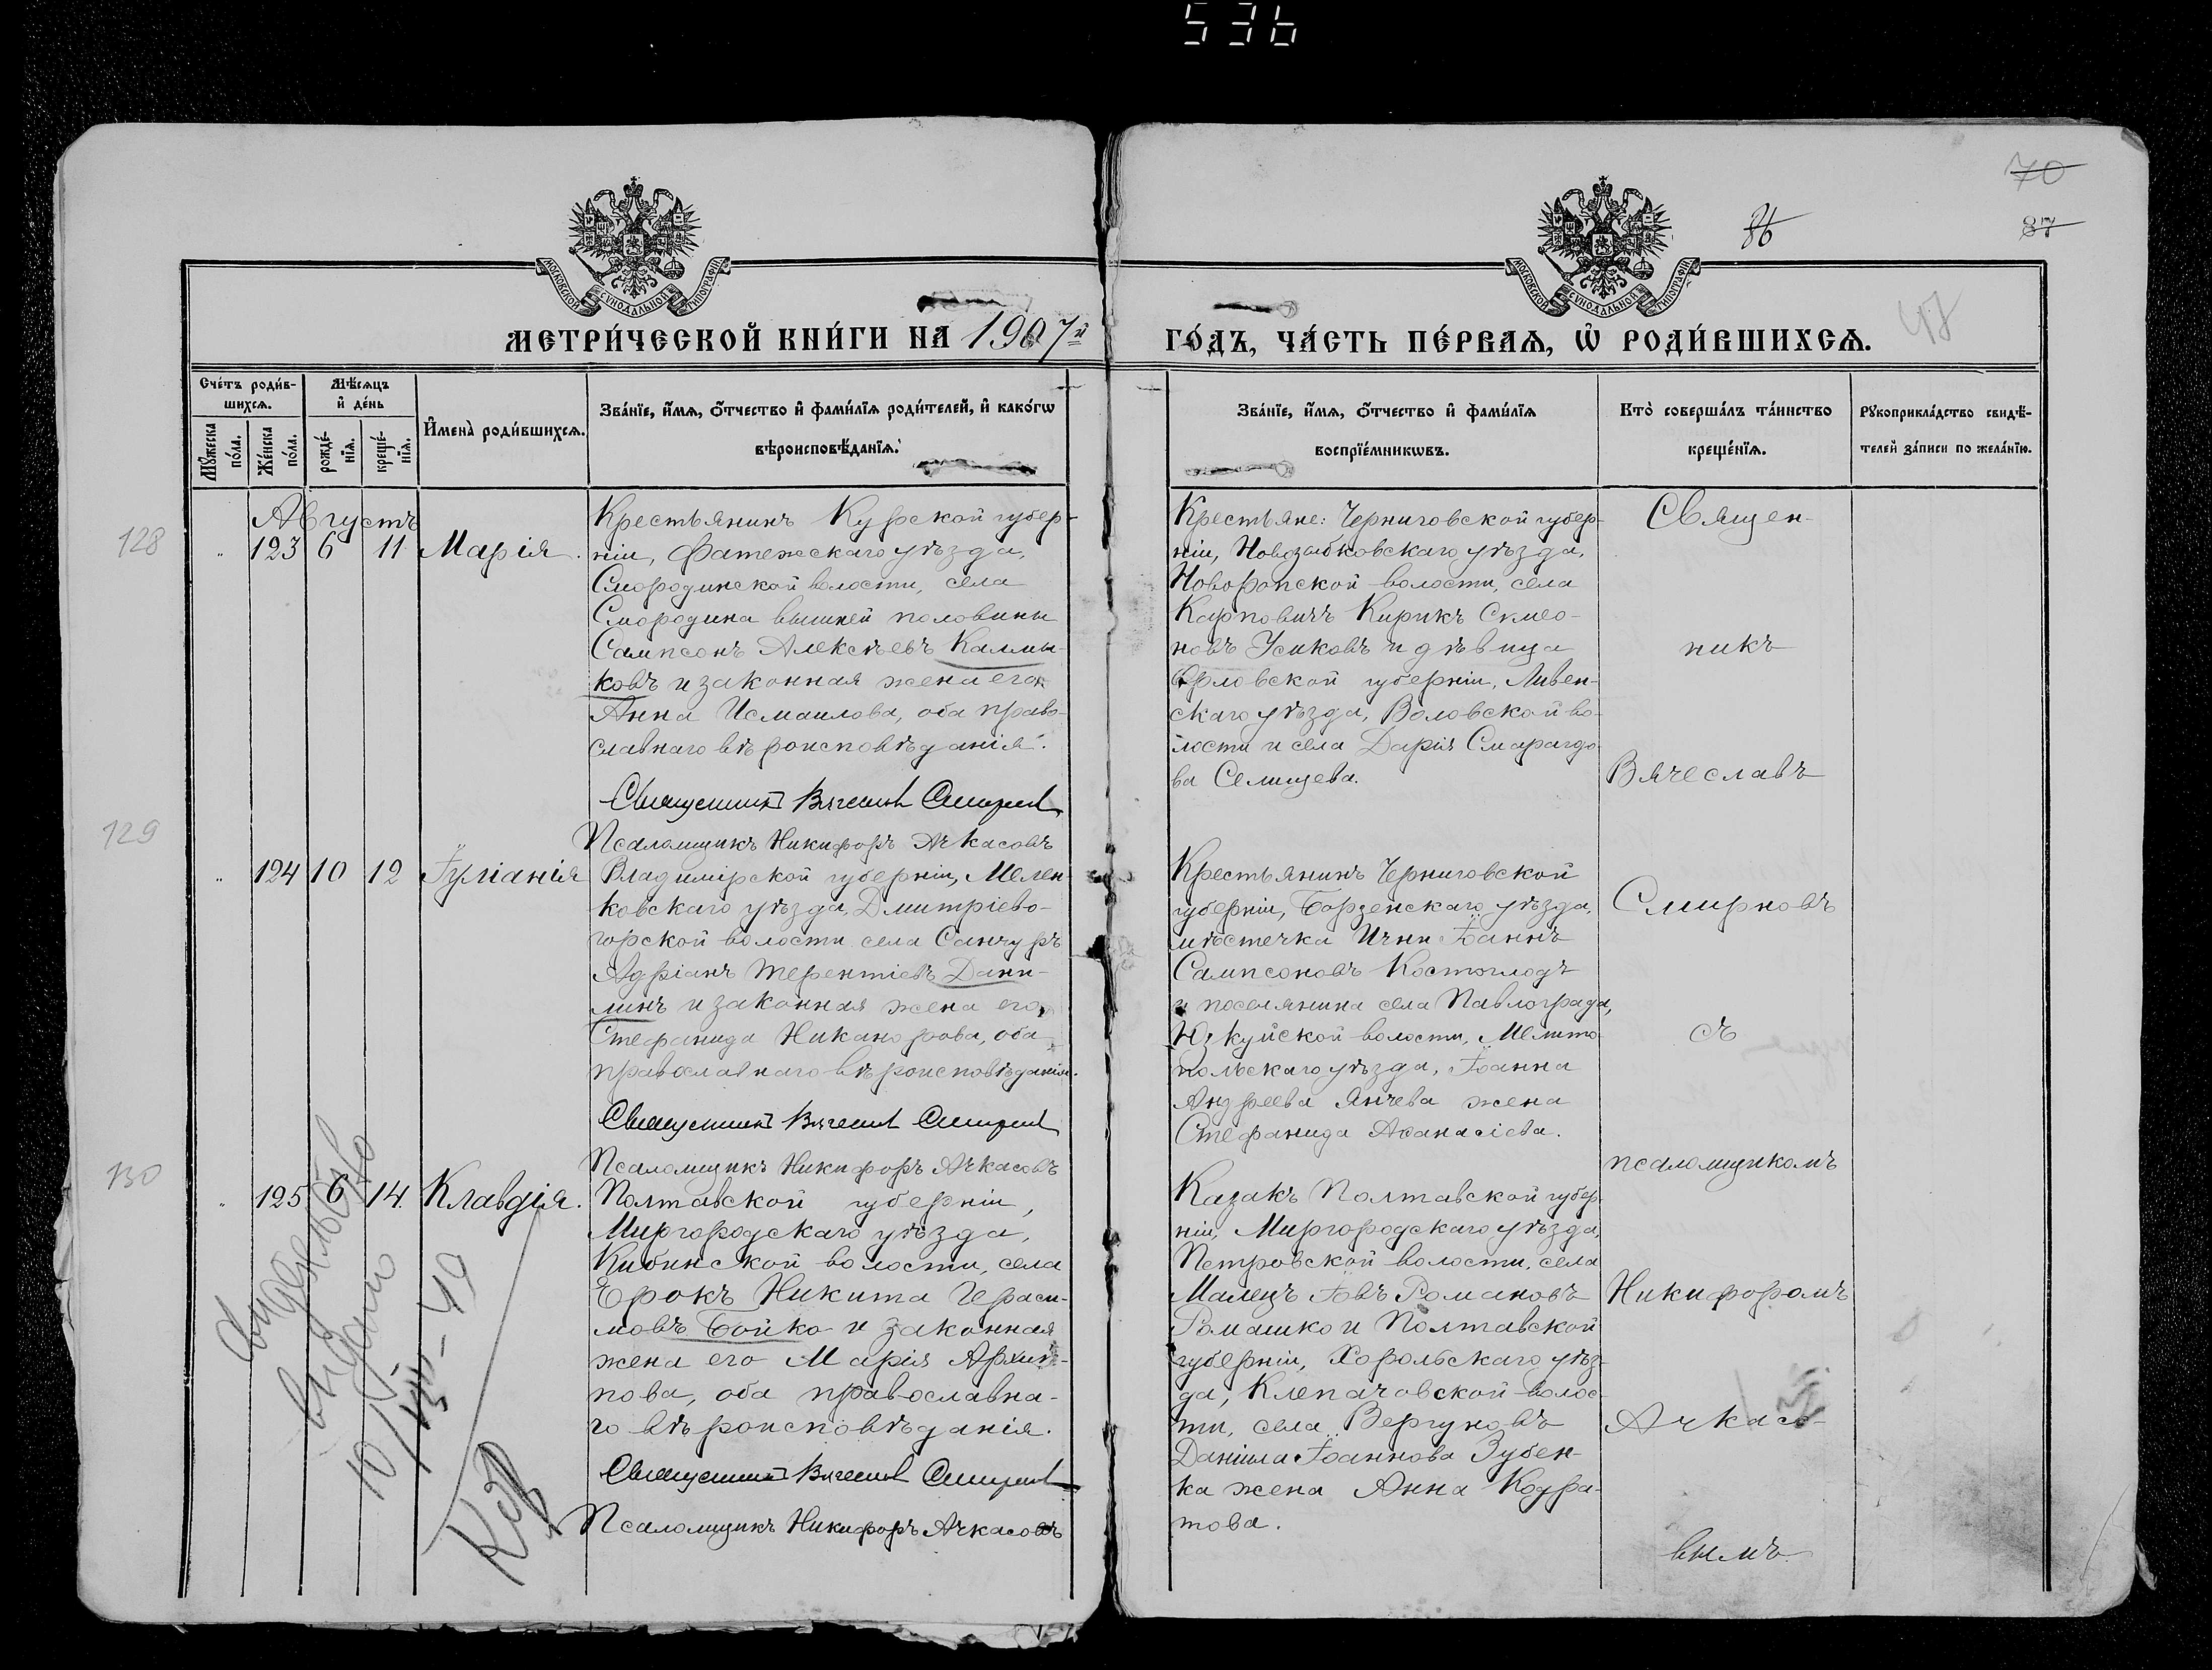 536
70
86
87
47
МОСКОВСКОЙ СУНОДАЛЬНОЙ ТИПОГРАФІИ
МОСКОВСКОЙ СУНОДАЛЬНОЙ ТИПОГРАФІИ
МЕТРИ́ЧЕСКОЙ КНИ́ГИ НА 1907й ГО́ДЪ, ЧА́СТЬ ПЕ́РВАѦ, Ѡ҆ РОДИ́ВШИХСѦ.
Сче́тъ роди́в-
шихсѧ.
Мѣ́сѧцъ
и҆ де́нь
Мꙋ́жеска по́ла.
Же́нска по́ла.
рожде́-нїѧ.
креще́-нїѧ.
И҆мена̀ роди́вшихсѧ.
Зва́нїе, и҆́мѧ, ѻ҆́тчество и҆ фами́лїѧ роди́телей, и҆ како́гѡ
вѣроисповѣ́данїѧ.
Зва́нїе, и҆́мѧ, ѻ҆́тчество и҆ фами́лїѧ
воспрїе́мникѡвъ.
Кто̀ соверша́лъ та́инство
креще́нїѧ.
Рꙋкоприкла́дство свидѣ́-
телей за́писи по жела́нїю.
Августъ
128
„ 123 6 11 Марія.
Крестьянинъ Курской губер-
ніи, Фатежскаго уѣзда,
Смородинской волости, села
Смородина вышней половины
Сампсонъ Алексѣевъ Калмы-
ковъ и законная жена его
Анна Исмаилова, оба право-
славнаго вѣроисповѣданія.
Священникъ Вячеславъ Смирновъ
Псаломщикъ Никифоръ Ачкасовъ
Крестьяне: Черниговской губер-
ніи, Новозыбковскаго уѣзда,
Новоропской волости, села
Карповичъ Кирикъ Симео-
новъ Усиковъ и дѣвица
Орловской губерніи, Ливен-
скаго уѣзда, Воловской во-
лости и села Дарія Смарагдо-
ва Селищева.
129
„ 124 10 12 Іуліанія
Владимірской губерніи, Мелен-
ковскаго уѣзда, Дмитріево-
горской волости села Санчуръ
Адріанъ Терентіевъ Дани-
линъ и законная жена его
Стефанида Никанорова, оба
православнаго вѣроисповѣданія.
Священникъ Вячеславъ Смирновъ
Псаломщикъ Никифоръ Ачкасовъ
Крестьянинъ Черниговской
губерніи, Борзенскаго уѣзда,
мѣстечка Ични Іоаннъ
Сампсоновъ Костоглодъ
и поселянина села Павлограда,
Юзкуйской волости, Мелито-
польскаго уѣзда, Іоанна
Андреева Янчева жена
Стефанида Аѳанасіева.
130
„ 125 6 14. Клавдія.
Полтавской губерніи,
Миргородскаго уѣзда,
Кибинской волости, села
Ерокъ Никита Гераси-
мовъ Бойко и законная
жена его Марія Архип-
пова, оба православна-
го вѣроисповѣданія.
Священникъ Вячеславъ Смирновъ
Псаломщикъ Никифоръ Ачкасовъ
Казакъ Полтавской губер-
ніи, Миргородскаго уѣзда,
Петровской волости, села
Малецъ Іовъ Романовъ
Ромашко и Полтавской
губерніи, Хорольскаго уѣз-
да, Клепачовской волос-
ти, села Вергуновъ
Даніила Іоаннова Зубен-
ка жена Анна Кодра-
това.
Священ-
никъ
Вячеславъ
Смирновъ
съ
псаломщикомъ
Никифоромъ
Ачкасо-
вымъ
Свидетельство
выдано